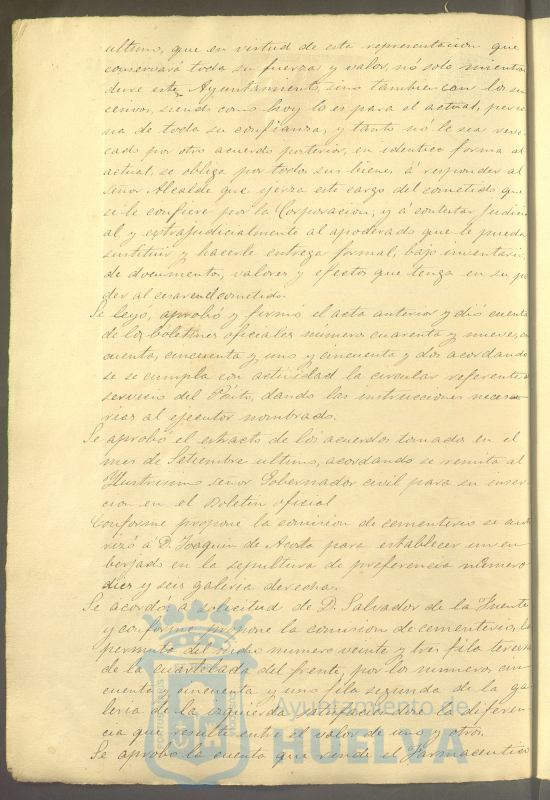 ultimo, que en virtud de esta representacion que
conservará toda su fuerza y valor, nó solo mientras
dure este Ayuntamiento, sino tambien con los su
cesivos, siendo como hoy lo es para el actual, perso
na de toda su confianza, y tanto nó le sea revo
cado por otro acuerdo posterior, en identica forma al
actual, se obliga por todos sus bienes, á responder al
Señor Alcalde que ejerza este cargo del cometido que
se le confiere por la Corporacion, y á contestar judici
al y extrajudicialmente al apoderado que le pueda
sustituir y hacerle entrega formal, bajo inventario,
de documentos, valores y efectos que tenga en su po
der al cesar en el cometido.
Se leyó, aprobó y firmó el acta anterior y dió cuenta
de los boletines oficiales números cuarenta y nueve, cin
cuenta, cincuenta y uno y cincuenta y dos acordando
se se cumpla con actividad la circular referente á
servicio del Pósito, dando las instrucciones necesa
rias al ejecutor nombrado.
Se aprobó el extracto de los acuerdos tomados en el
mes de Setiembre ultimo, acordando se remita al
Ilustrisimo señor Gobernador civil para su inser
cion en el Boletin oficial
Conforme propone la comision de cementerio se auto
rizó á D. Joaquin de Acosta para establecer un em
berjado en la sepultura de preferencia número
diez y seis galeria derecha.
Se acordó á solicitud de D. Salvador de la Fuente
y conforme propone la comision de cementerios, la
permuta del nicho numero veinte y tres fila tercera
de la cuartelada del frente, por los numeros cin
cuenta y cincuenta y uno fila segunda de la ga
leria de la izquierda satisfaciendo la diferen
cia que resulte entre el valor de uno y otros.
Se aprobó la cuenta que rinde el Farmaceutico
Ayuntamiento de
HUELVA